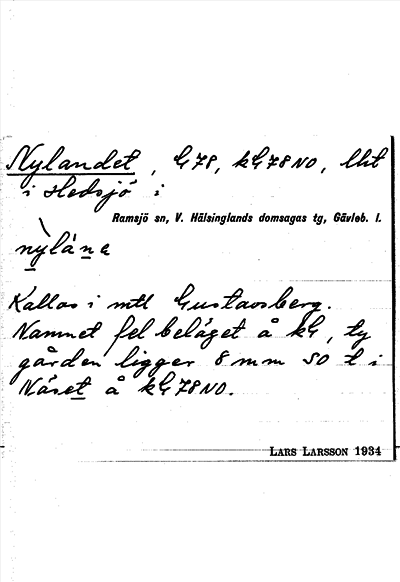 Nylandet, G78, kG78NO, lht
i Hedsjö i
Ramsjö sn, V. Hälsinglands domsagas tg, Gävleb. l.
nỳláne
Kallas i mtl Gustavsberg.
Namnet fel beläget å kG, ty
gården ligger 8 mm SO t i
Näset å kG78NO.
LARS LARSSON 1934